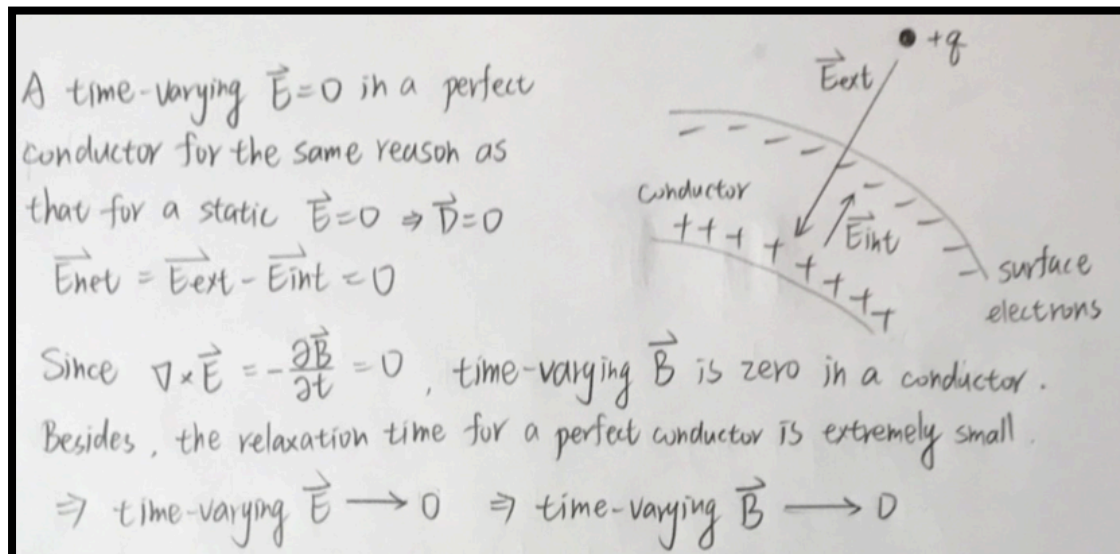 A time-varying \vec{E}=0 in a perfect
conductor for the same reason as
that for a static \vec{E}=0 ⇒ \vec{D}=0
\vec{Enet} = \vec{Eext} - \vec{Eint} = 0
+q
\vec{Eext}
conductor
\vec{Eint}
surface
electrons
Since ∇×\vec{E} = -\frac{∂\vec{B}}{∂t} = 0, time-varying \vec{B} is zero in a conductor.
Besides, the relaxation time for a perfect conductor is extremely small.
⇒ time-varying \vec{E} ⟶ 0 ⇒ time-varying \vec{B} ⟶ 0